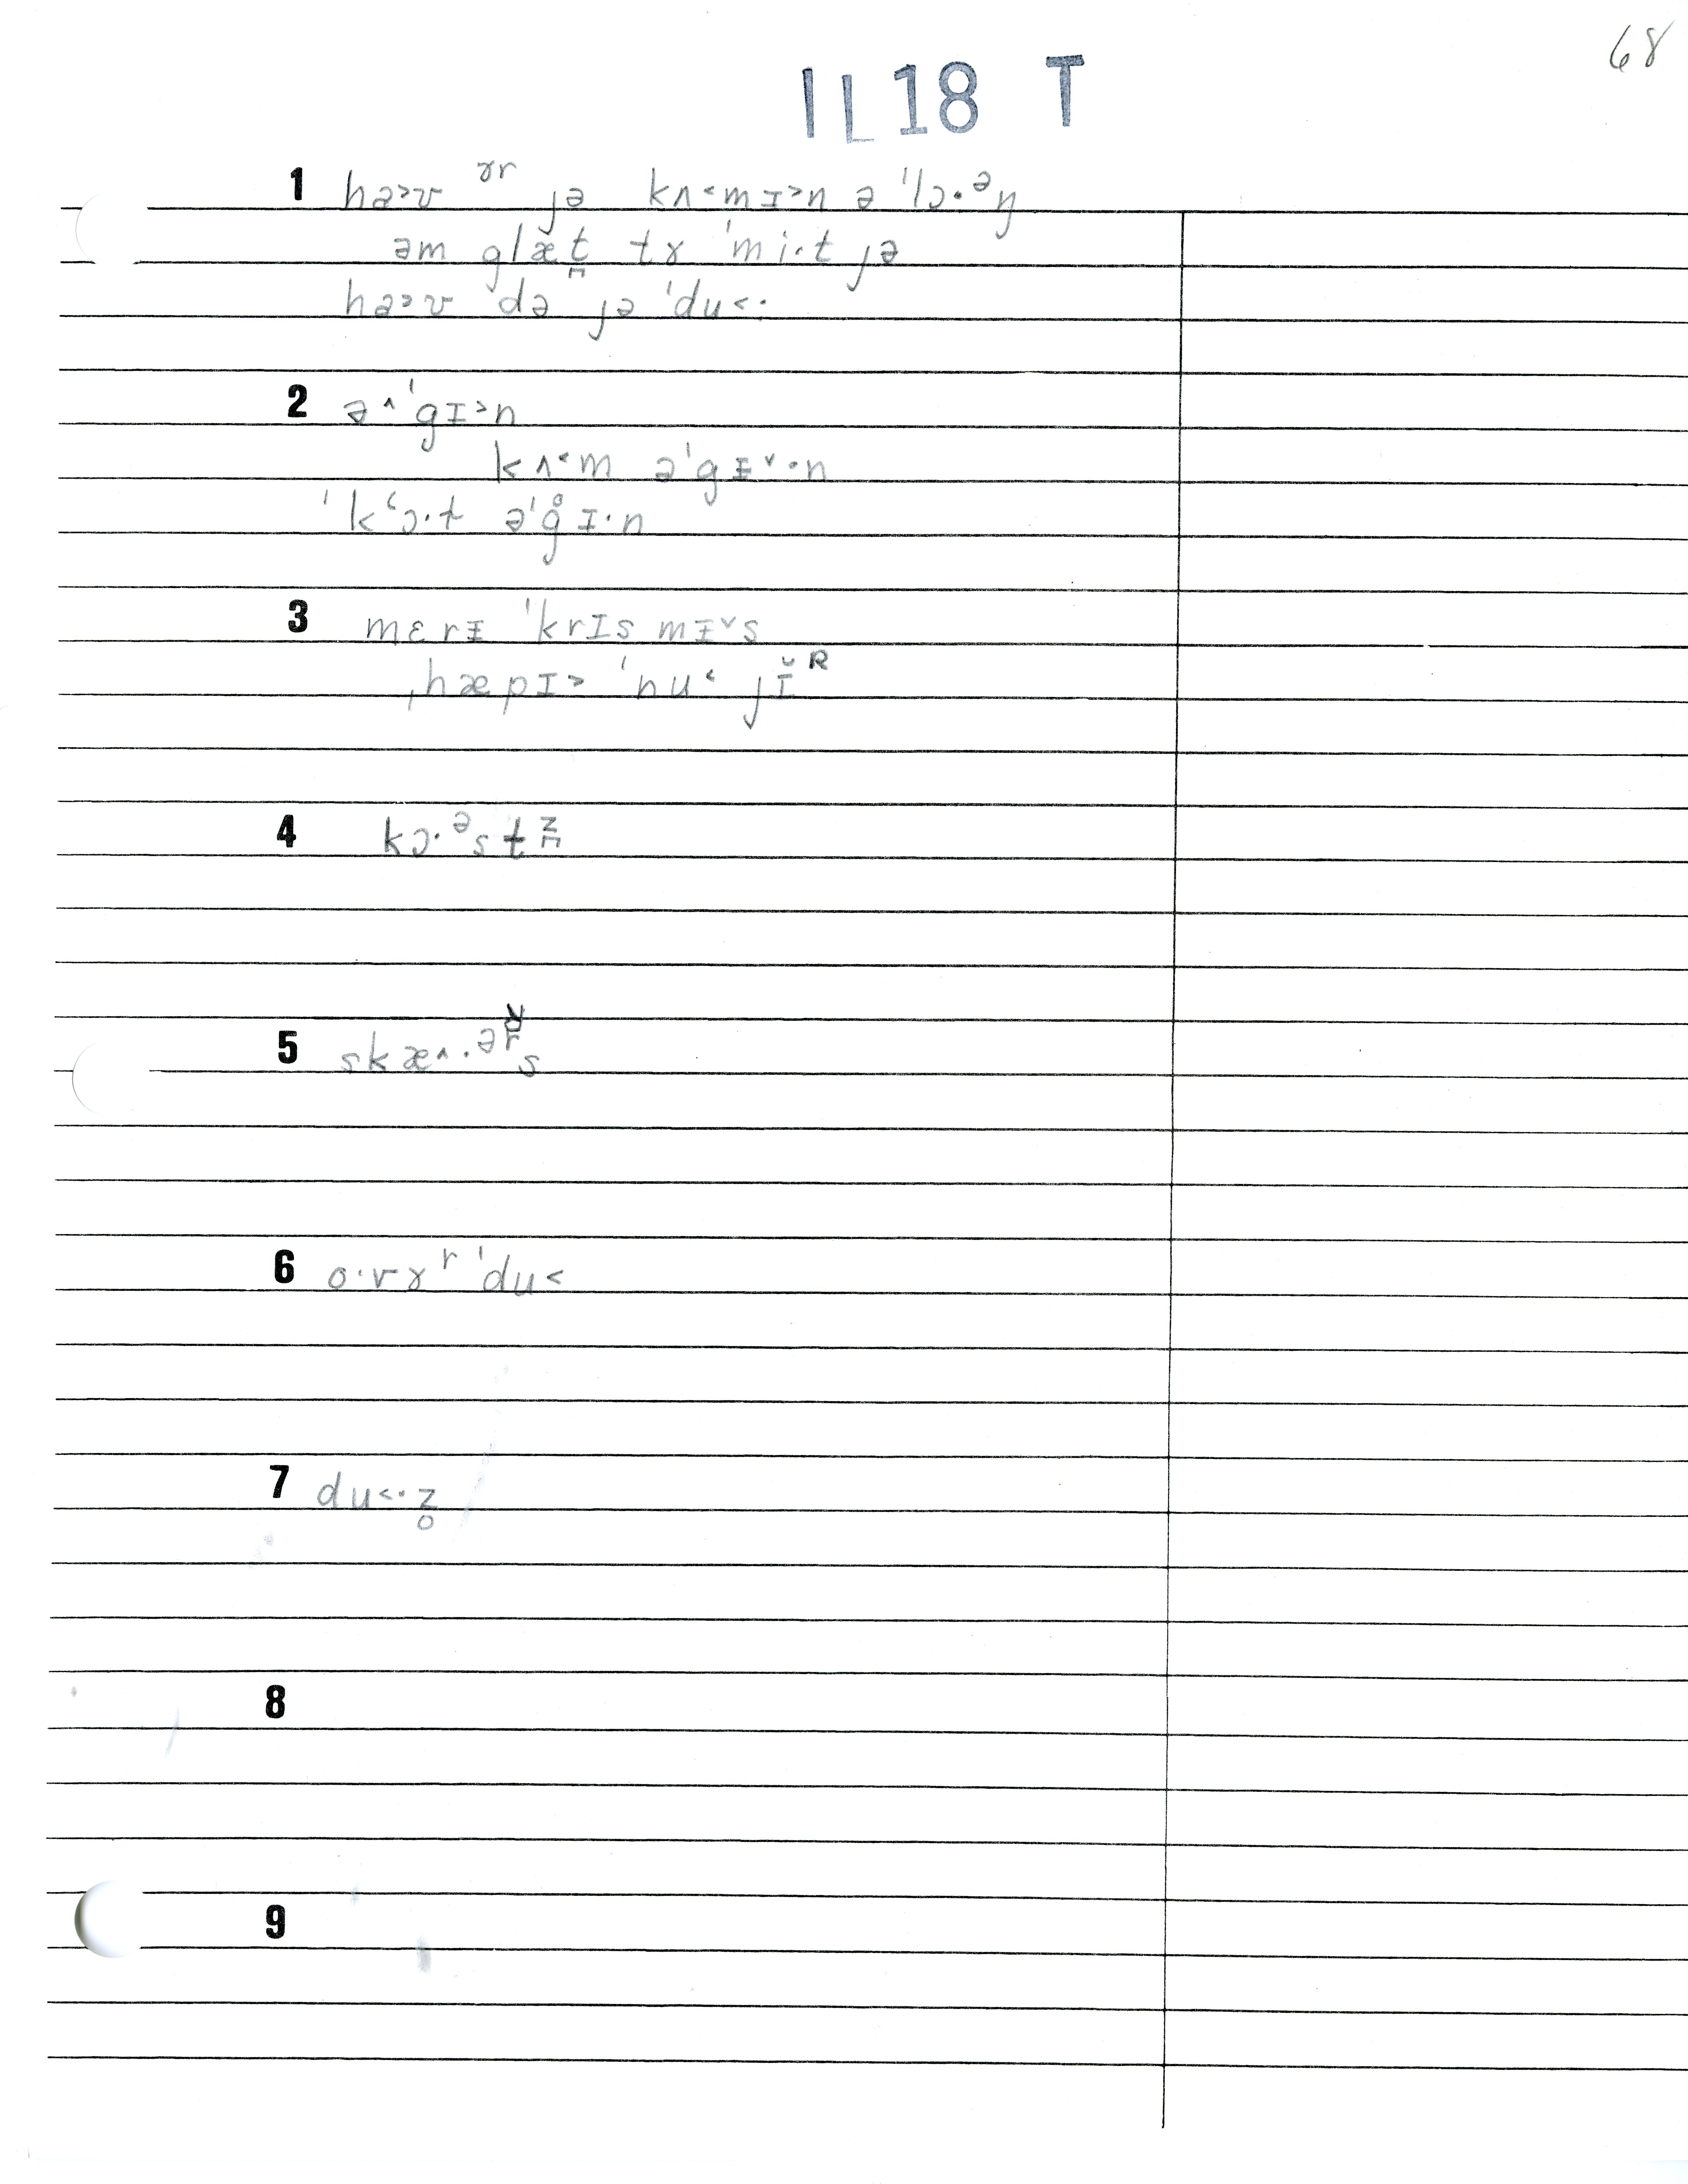 68
IL18 T
1 hə˃ʊ ɤr jə kʌ˂mɪ˃n ə ˈlɔ·ᵊŋ
əm glæt̬ tɤ ˈmi·t jə
hə˃ʊ də jə ˈdu˂·
2 ə˄ˈgɪ˃n
kʌ˂m əˈgɪ˅·n
ˈkʿɔ·t əˈg̊ɪ·n
3 mɛrɪ ˈkrɪsmɪ˅s
ˌhæpɪ˃ ˈnu˂ jɪ̆ᴿ
4 kɔ·ᵊstz̬
5 skæ˄·ᵊʳs
6 o·vɤʳ ˈdu˂
7 du˂·z̥
8
9